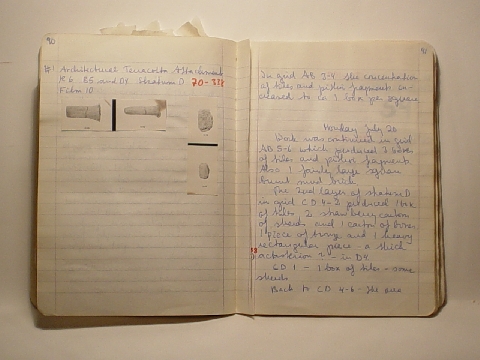 90
#1 Architectural Terracotta Attachment
R6 B5 and D4 Stratum D
70-338
Film 10
91
In grid AB 3-4 the concentration
of tiles and pithos fragments
to 1 box per square
Monday July 20
Work was continued in grid
AB 5-6 which produced 3 boxes
of tiles and pithos fragments
Also 1 fairly large square
burnt mud brick
The 2nd layer of stratum D
in grid CD 4-2 produced 1 box
of tiles 2 strawberry cartons
of sherds and 1 carton of bones
1 piece of bronze and 1 heavy
rectangular piece - a thick
in D4
CD 1 - 1 box of tiles - some
sherds
Back to CD 4-6 - the area